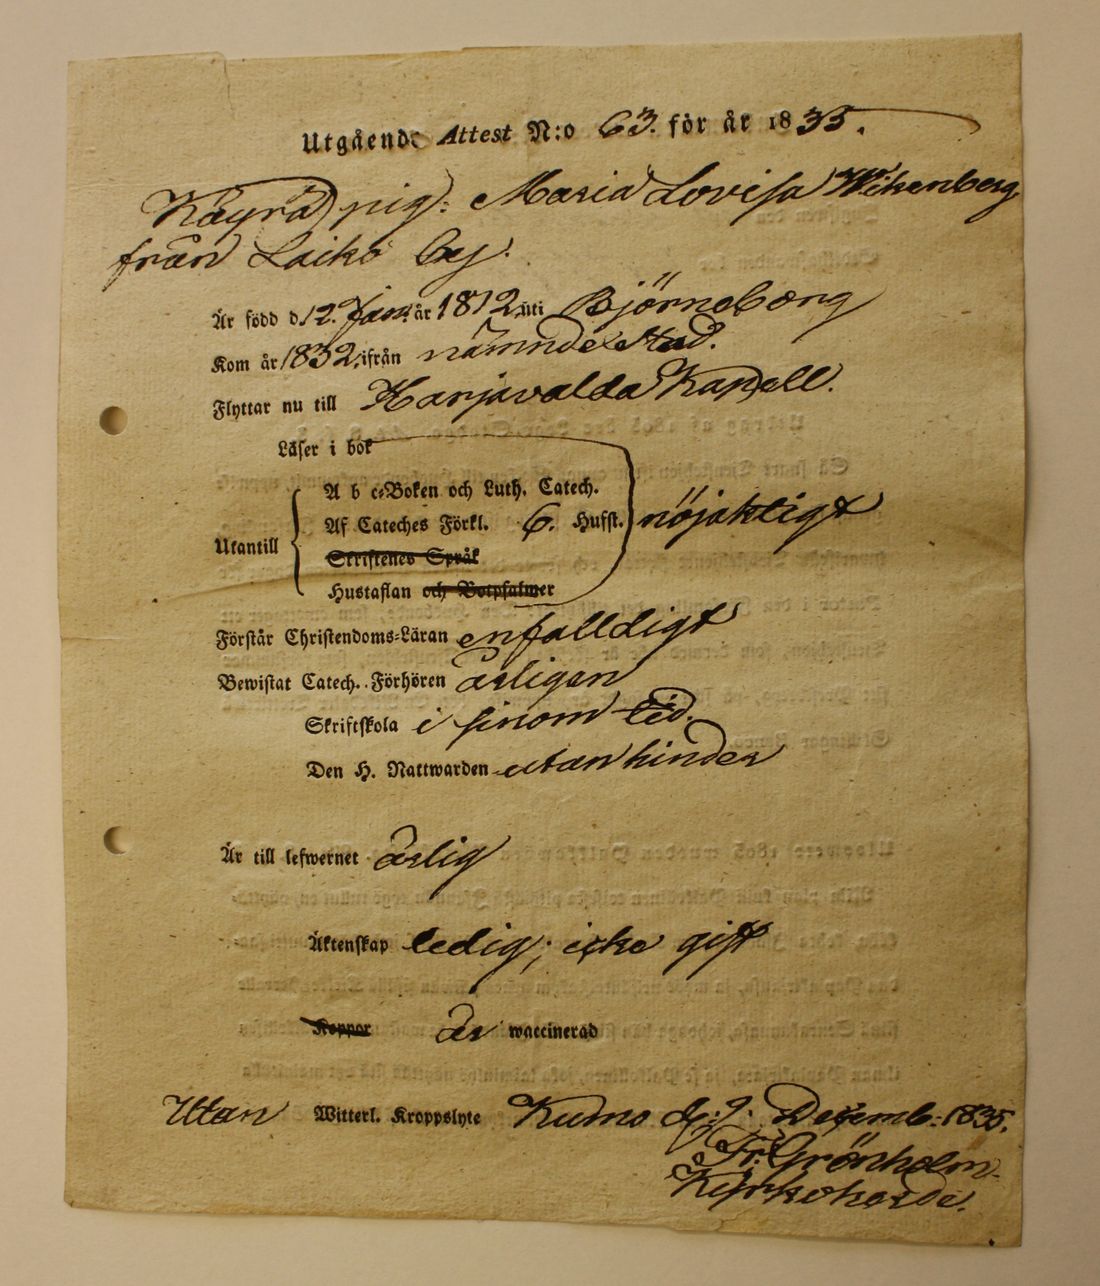 Utgående Attest N:o 63. för år 1835.
pig: Maria Lovisa Wikenberg
från Laiko by.
Är född d. 12. Jan. år 1812, uti Björneborg
Kom år 1832, ifrån nämnde stad.
Flyttar nu till Harjavalda Kapell.
Läser i bok
A b c-Boken och Luth. Catech.
Af Cateches Förkl. 6. Hufst. nöjaktigt
Utantill
Skriftenes Språk
Hustaflan och Botpsalmer
Förstår Christendoms-Läran enfalldigt
Bewistat Catech. Förhören årligen
Skriftskola i sinom tid.
Den H. Nattwarden utan hinder
Är till lefwernet ärlig
Äktenskap ledig; icke gift
Koppor är waccinerad
Utan Witterl. Kroppslyte Kumo d. 9. Decemb: 1835.
Fr: Grönholm
Kyrkoherde.